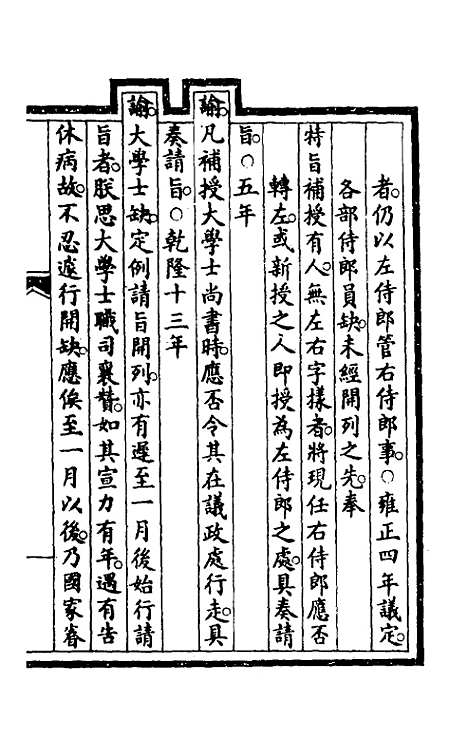 者。仍以左侍郎管右侍郎事。○雍正四年議定。
各部侍郎員缺。未經開列之先。奉
特旨補授有人。無左右字樣者。將現任右侍郎應否
轉左。或新授之人即授為左侍郎之處。具奏請
旨。○五年
諭。凡補授大學士尚書時。應否令其在議政處行走。具
奏請旨。○乾隆十三年
諭。大學士缺。定例請旨開列。亦有遲至一月後始行請
旨者。朕思大學士職司襄贊。如其宣力有年。遇有告
休病故。不忍遽行開缺。應俟至一月以後。乃國家眷